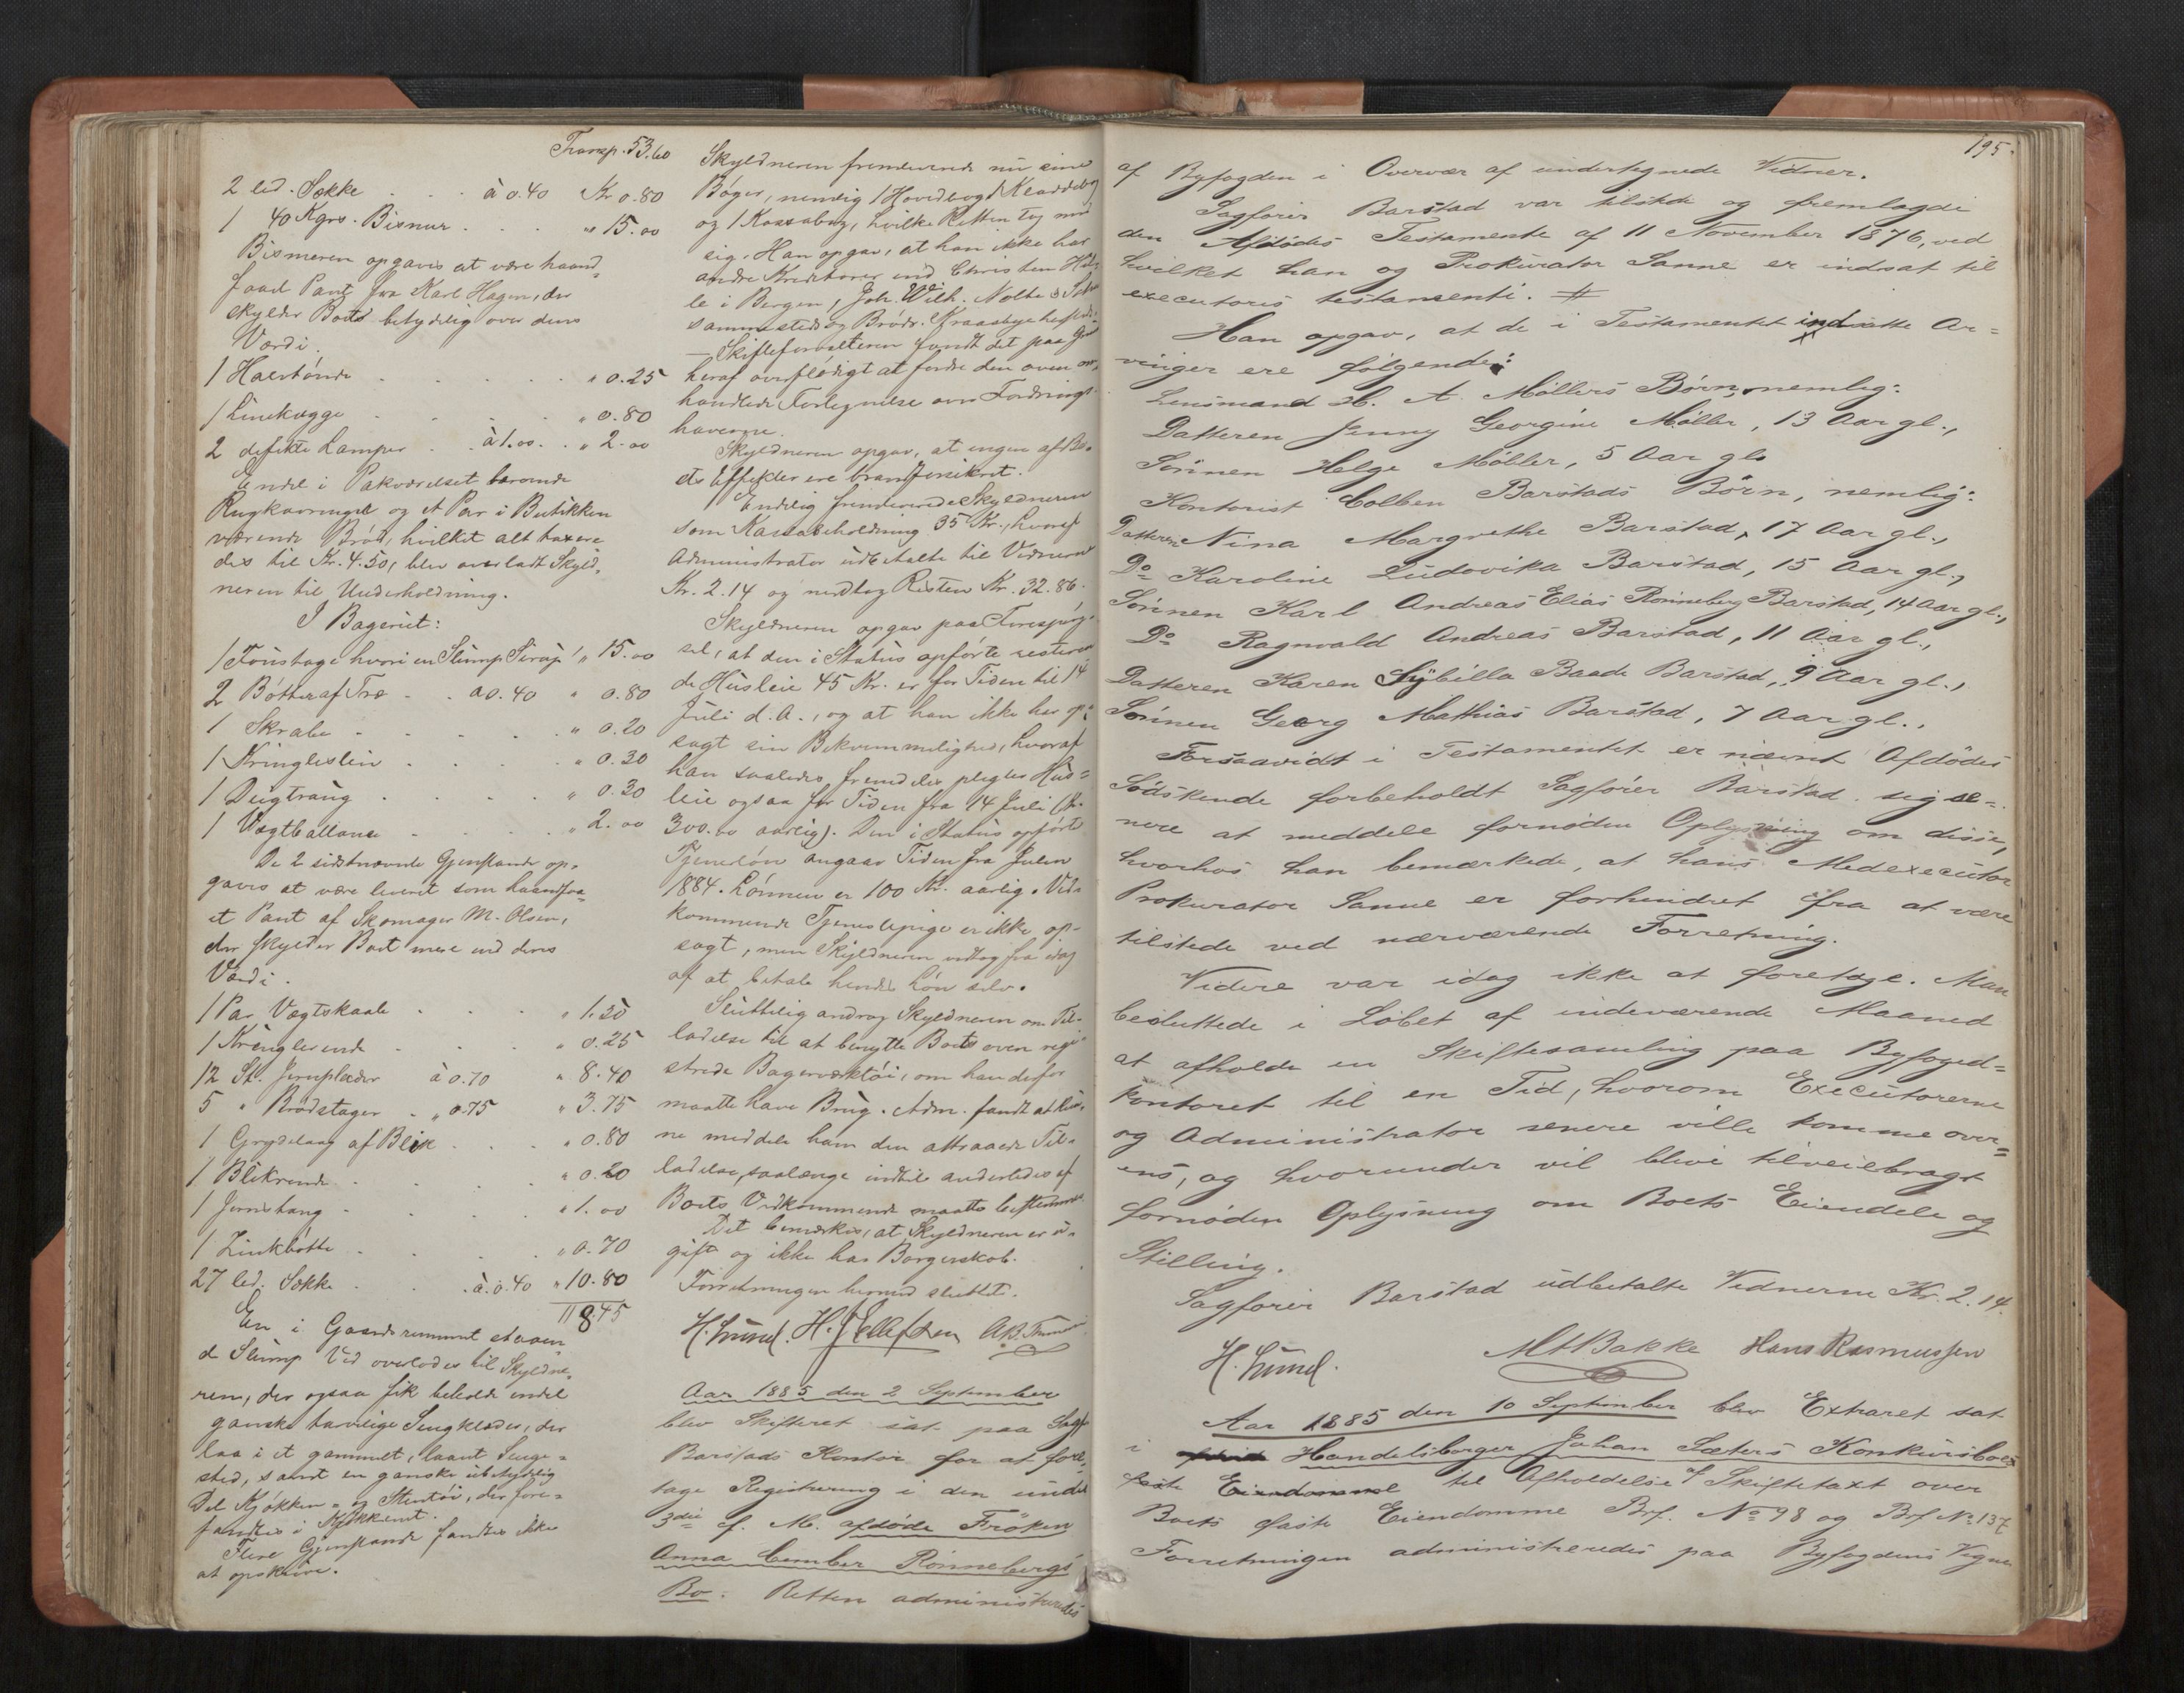 Transp. 53.60
2 led. Sække . . . à 0.40 Kr 0.80
1 40 Kgrs. Bismer . . . " 15.00
Bismeren opgaves at være haand
faaet Pant fra Karl Hagen, der
skylder Boet betydelig over dens
Værdi.
1 Halvtønde . . . . . " 0.25
1 Linekagge . . . . . " 0.80
2 defekte Lamper . . à 1.00 . . " 2.00
Endel i Pakværelset værende
Rugkavringer og et Par i Butikken
værende Brød, hvilket alt taxere
des til Kr. 4.50, blev overladt Skyld-
neren til Underholdning.
I Bageriet:
1 Foustage hvori en Slump Sirup " 15.00
2 Bøtter af Træ . . à 0.40 " 0.80
1 Skrabe . . . . . " 0.20
1 Kringleslei . . . . " 0.30
1 Deigtraug . . . . . " 0.30
1 Vægtballance . . . . " 2.00
De 2 sidstnævnte Gjenstande op-
gaves at være leveret som haandfaa-
et Pant af Skomager M. Olsen,
der skylder Boet mere end deres
Værdi.
1 Par Vægtskaale . . . " 1.20
1 Kringlerende . . . " 0.25
12 St. Jernplader à 0.70 " 8.40
5 " Brødstager . " 0.75 " 3.75
1 Grydelaag af Blik . . . " 0.80
1 Blikrende . . . . " 0.20
1 Jernstang . . . . " 1.00
1 Zinkbøtte . . . . " 0.70
27 led. Sække . . . à 0.40 " 10.80
118.45
En i Gaardsrummet staaen
de Slump Ved overlodes til Skyldne-
ren, der ogsaa fik beholde endel
ganske tarvelige Sengklæder, der
laa i et gammelt, laant Senge-
sted, samt en ganske ubetydelig
Del Kjøkken- og Stentøi, der fore-
fandtes i Kjøkkenet.
Flere Gjenstande fandtes ikke
at opskrive.
Skyldneren fremleverede nu sine
Bøger, nemlig 1 Hovedbog 1 Kladdebog
og 1 Kassabog, hvilke Retten tog med
sig. Han opgav, at han ikke har
andre Kreditorer end Christen
i Bergen, Joh. Wilh. Nolte &
sammesteds og Brødr. Kraasbye hersteds.
— Skifteforvalteren fandt det paa Grund
heraf overflødigt at fordre den oven om-
handlede Fortegnelse over Fordrings-
haverne.
Skyldneren opgav, at ingen af Bo-
ets Effekter ere brandforsikret.
Endelig fremleverede Skyldneren
som Kassabeholdning 35 Kr., hvoraf
Administrator udbetalte til Vidnerne
Kr. 2.14 og medtog Resten Kr. 32.86.
Skyldneren opgav paa Forespørg-
sel, at den i Status opførte resteren
de Husleie 45 Kr. er for Tiden til 14
Juli d. A., og at han ikke har op-
sagt sin Bekvemmelighed, hvoraf
han saaledes fremdeles plegter Hus-
leie ogsaa for Tiden fra 14 Juli (Kr.
300.00 aarlig). Den i Status opførte
Tjenerløn angaar Tiden fra Julen
1884. Lønnen er 100 Kr. aarlig. Ved-
kommende Tjenestepige er ikke op-
sagt, men Skyldneren vedtog fra idag
af at betale hendes Løn selv.
Sluttelig androg Skyldneren om Til-
ladelse til at benytte Boets oven regi-
strede Bagerværktøi, om han derfor
maatte have Brug. Adm. fandt at kun-
ne meddele ham den attraaede Til-
ladelse, saalænge indtil anderledes af
Boets Vedkommende maatte bestemmes.
Det bemærkes, at Skyldneren er u-
gift og ikke har Borgerskab.
Forretningen hermed sluttet.
H. Lund. H. J. Ellefsen A. B.
Aar 1885 den 2 September
blev Skifteret sat paa Sagf
Barstads Kontor for at fore-
tage Registrering i den under
3die f. M. afdøde Frøken
Anna Cember Rønnebergs
Bo. Retten administreredes
195.
af Byfogden i Overvær af undertegnede Vidner.
Sagfører Barstad var tilstede og fremlagde
den Afdødes Testamente af 11 November 1876, ved
hvilket han og Prokurator Sanne er indsat til
executores testamenti. #
Han opgav, at de i Testamentet indsatte Ar-
vinger ere følgende:
Lensmand H. A. Møllers Børn, nemlig:
Datteren Jenny Georgine Møller, 13 Aar gl.,
Sønnen Helge Møller, 5 Aar gl.
Kontorist Colben Barstads Børn, nemlig:
Datteren Nina Margrethe Barstad, 17 Aar gl.,
Do Karoline Ludovika Barstad, 15 Aar gl.,
Sønnen Karl Andreas Elias Rønneberg Barstad, 14 Aar gl.,
Do Ragnvald Andreas Barstad, 11 Aar gl.,
Datteren Karen Sybilla Baade Barstad, 9 Aar gl.,
Sønnen Georg Mathias Barstad, 7 Aar gl.,
Forsaavidt i Testamentet er nævnt Afdødes
Sødskende forbeholdt Sagfører Barstad sig se-
nere at meddele fornøden Oplysning om disse,
hvorhos han bemærkede, at hans Medexecutor
Prokurator Sanne er forhindret fra at være
tilstede ved nærværende Forretning.
Videre var idag ikke at foretage. Man
besluttede i Løbet af indeværende Maaned
at afholde en Skiftesamling paa Byfoged-
kontoret til en Tid, hvorom Executorerne
og Administrator senere ville komme over-
ens, og hvorunder vil blive tilveiebragt
fornøden Oplysning om Boets Eiendele og
Stilling.
Sagfører Barstad udbetalte Vidnerne Kr. 2.14.
H. Lund. M H Bakke Hans Rasmussen
Aar 1885 den 10 September blev Extraret sat
i Handelsborger Johan Sæters Konkursboes
faste Eiendomme til Afholdelse af Skiftetaxt over
Boets faste Eiendomme Brf. No 98 og Brf No 137
Forretningen administreredes paa Byfogdens Vegne